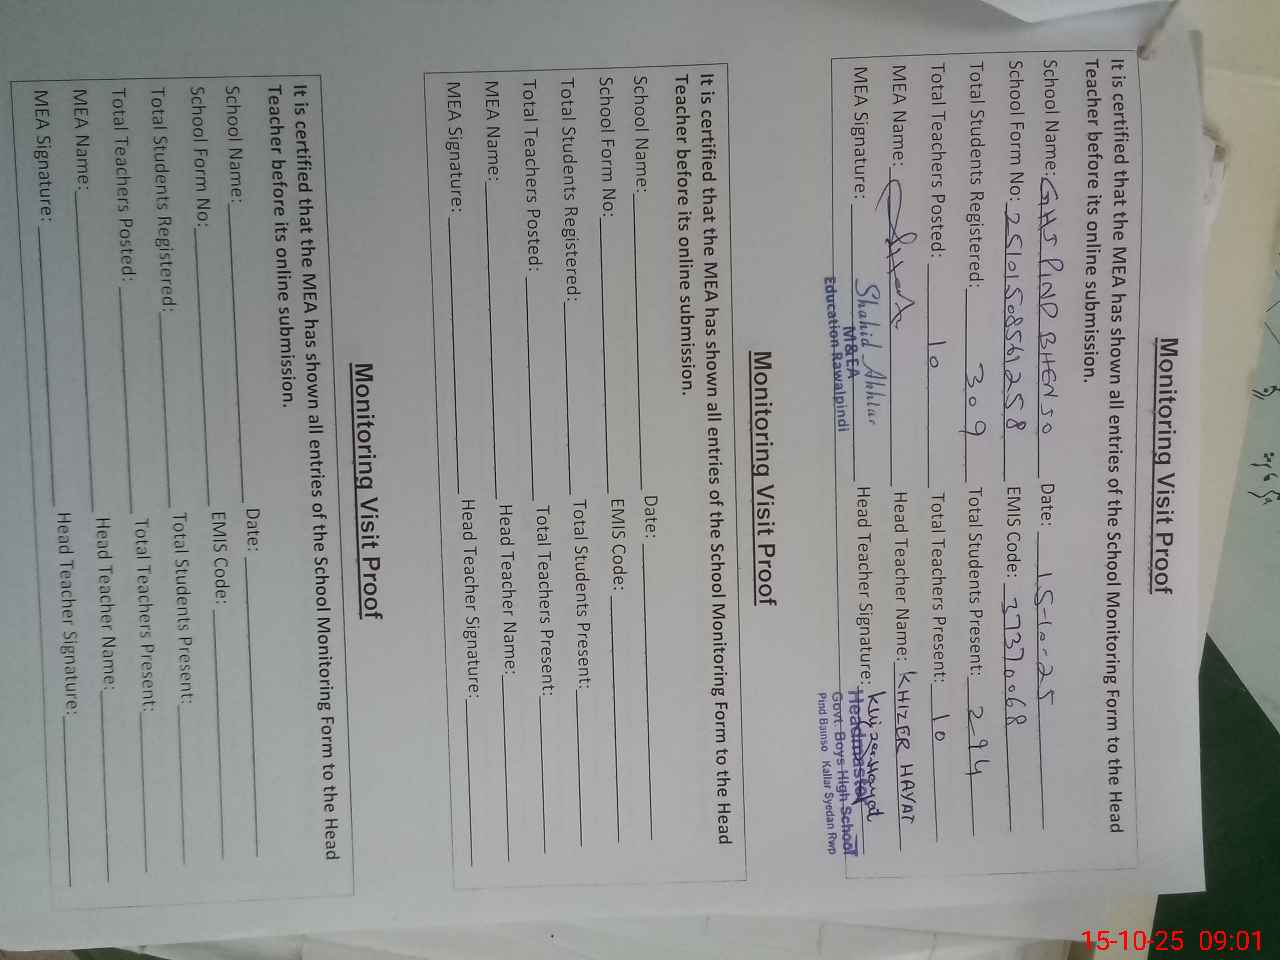 Monitoring Visit Proof
It is certified that the MEA has shown all entries of the School Monitoring Form to the Head
Teacher before its online submission.
School Name: GHS PIND BHENSO Date: 15-10-25
School Form No: 25101508561258 EMIS Code: 37370068
Total Students Registered: 309 Total Students Present: 294
Total Teachers Posted: 10 Total Teachers Present: 10
MEA Name: Head Teacher Name: KHIZER HAYAT
MEA Signature: Shahid Akhtar Head Teacher Signature: Khizer Hayat
M&EA
Education Rawalpindi
Headmaster
Govt. Boys High School
Pind Bainso Kallar Syedan Rwp
Monitoring Visit Proof
It is certified that the MEA has shown all entries of the School Monitoring Form to the Head
Teacher before its online submission.
School Name: Date:
School Form No: EMIS Code:
Total Students Registered: Total Students Present:
Total Teachers Posted: Total Teachers Present:
MEA Name: Head Teacher Name:
MEA Signature: Head Teacher Signature:
Monitoring Visit Proof
It is certified that the MEA has shown all entries of the School Monitoring Form to the Head
Teacher before its online submission.
School Name: Date:
School Form No: EMIS Code:
Total Students Registered: Total Students Present:
Total Teachers Posted: Total Teachers Present:
MEA Name: Head Teacher Name:
MEA Signature: Head Teacher Signature:
15-10-25 09:01